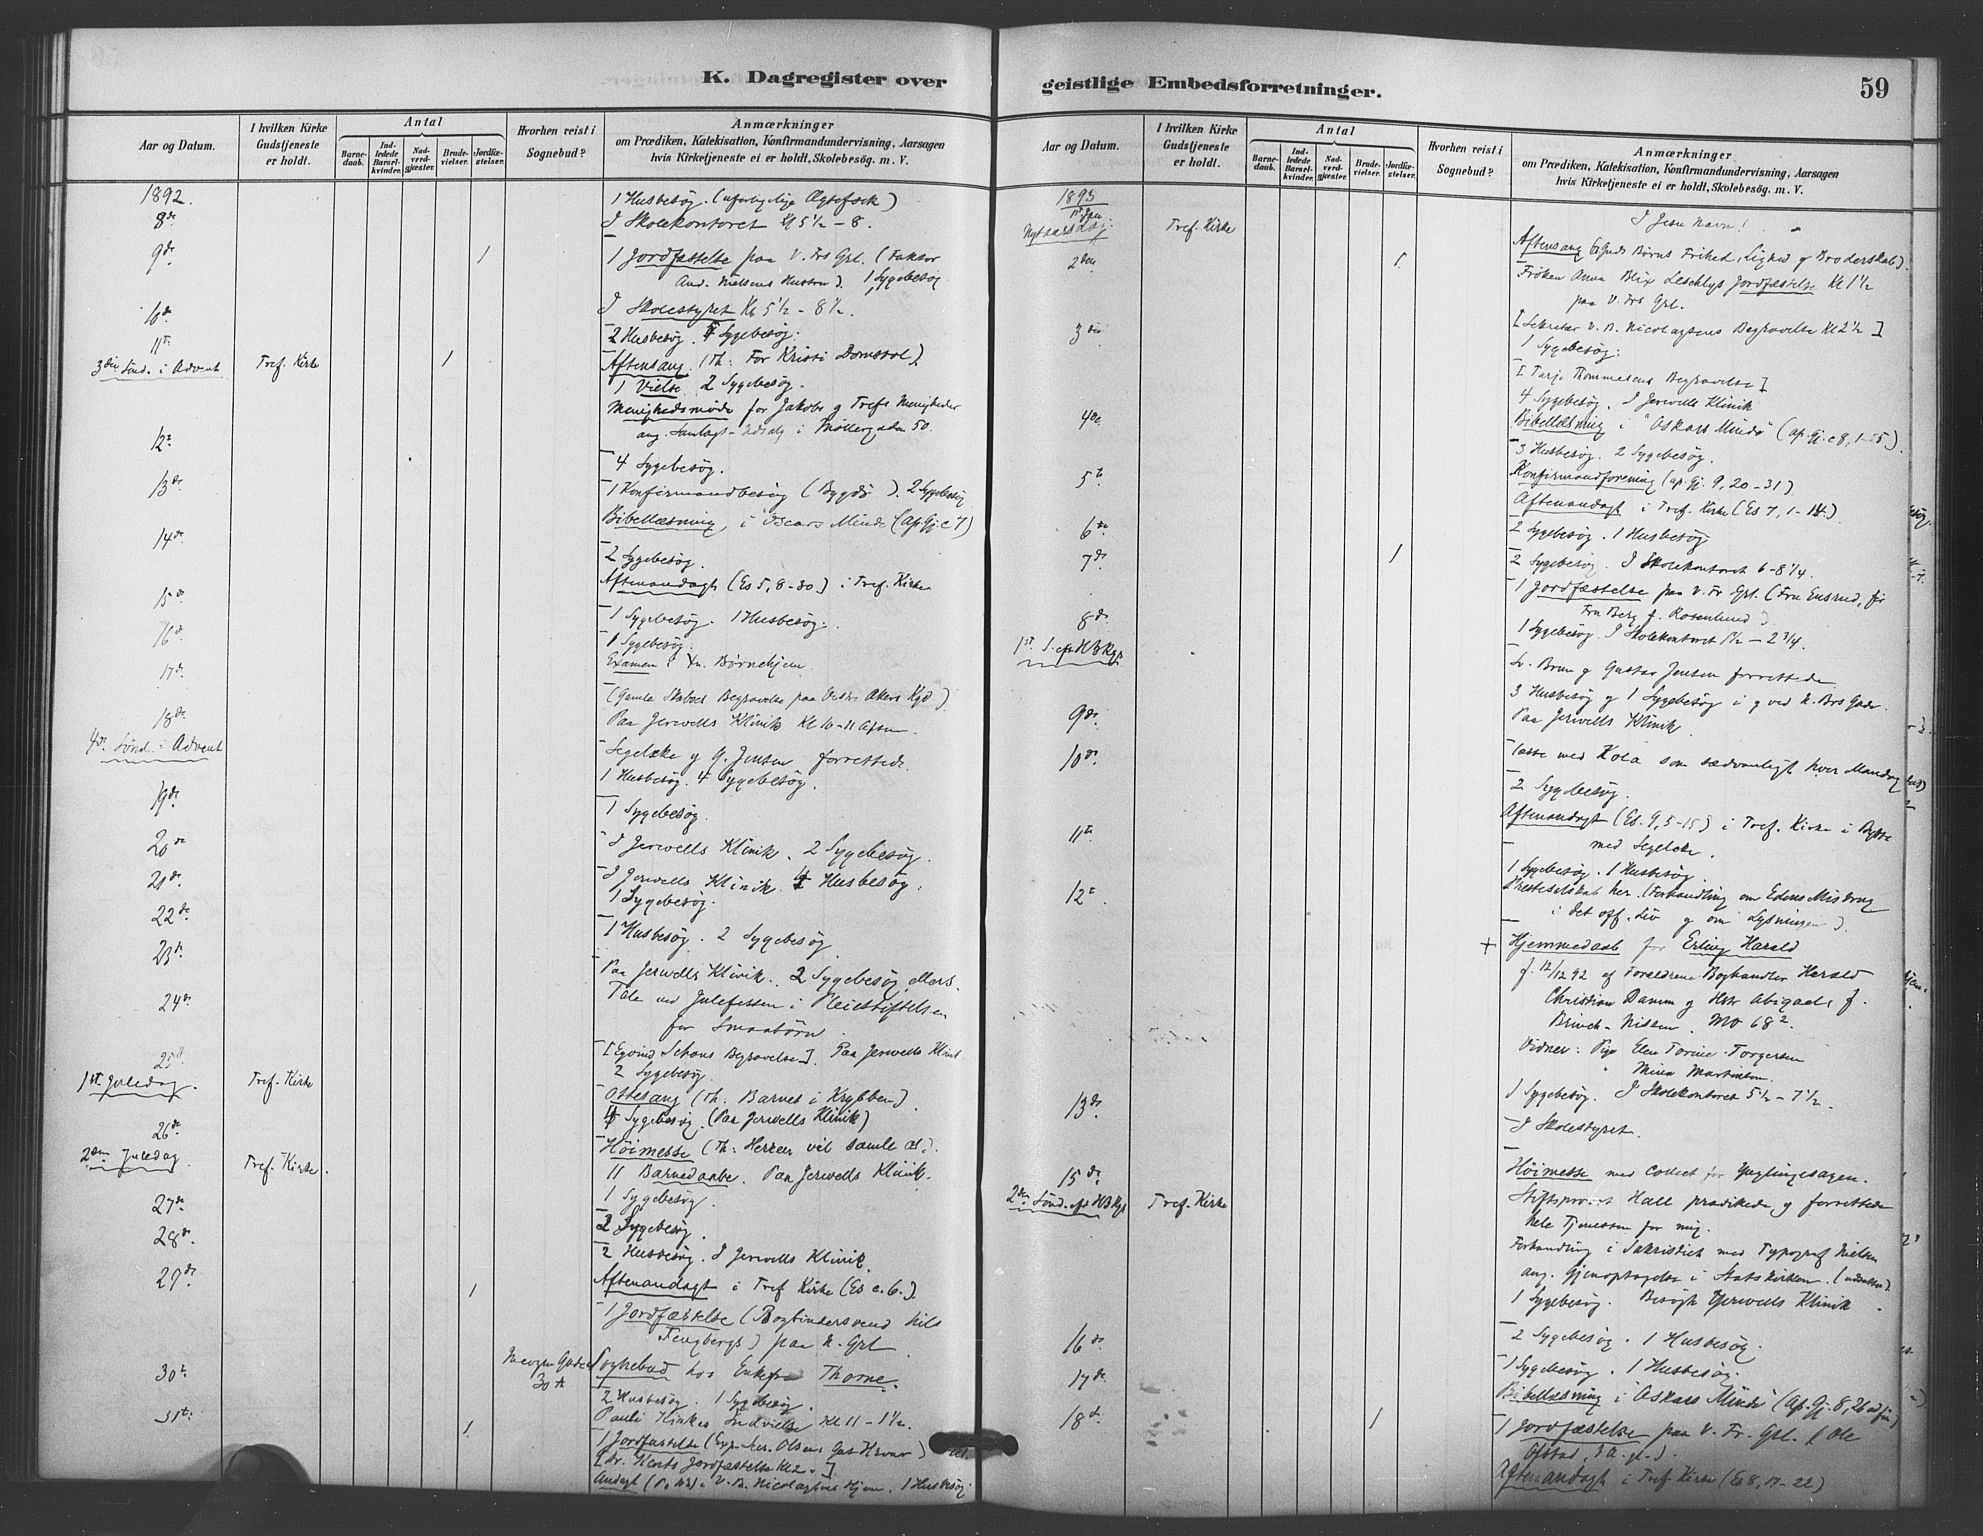 K. Dagregister over
Aar og Datum.
I hvilken Kirke Gudstjeneste er holdt.
Antal
Barnedaab.
Indledede Barselkvinder.
Nadverdgjæster.
Brudevielser.
Jordfæstelser.
Hvorhen reist i Sognebud?
Anmærkninger
om Prædiken, Katekisation, Konfirmandundervisning, Aarsagen
hvis Kirketjeneste ei er holdt, Skolebesøg. m. V.
1892.
8de 1 Husbesøg.
I Skolekontoret Kl 5 1/2 – 8.
9de 1 1 Jordfæstelse paa V. Frs Grl. (Faktor
And. Nielsens Hustru). 1 Sygebesøg
10de I Skolestyret Kl 5 1/2 – 8 1/2.
11te 2 Husbesøg. Sygebesøg.
3die Sønd. i Advent Tref. Kirke 1 Aftensang (Th: For Kristi Domstol)
1 Vielse. 2 Sygebesøg.
Menighedsmøde for Jakobs og Trefs Menigheder
ang. Samlags-Udsalg i Møllergaden 50.
12te 4 Sygebesøg.
13de 1 Konfirmandbesøg (Bygdø). 2 Sygebesøg
Bibellæsning i Oscars Minde (Ap Gj. c 7)
14de 2 Sygebesøg.
Aftenandagt (Es 5, 8–30) i Tref. Kirke
15de 1 Sygebesøg. 1 Husbesøg.
16de 1 Sygebesøg.
Examen i Børnehjem
17de Begravelse paa Vestre Akers Kgd).
18de Paa Jervells Klinik Kl 10–11 Aften.
4de Sønd. i Advent Segelcke og G. Jensen forrettede.
1 Husbesøg. 4 Sygebesøg.
19de 1 Sygebesøg.
20de I Jervells Klinik. 2 Sygebesøg.
21de I Jervells Klinik. Husbesøg.
1 Sygebesøg.
22de 1 Husbesøg. 2 Sygebesøg
23de Paa Jervells Klinik. 2 Sygebesøg ellers.
24de Tale ved Julefesten i Pleiestiftelsen
for Smaabørn.
[Eyvind Begravelse]. Paa Jervells Klinik.
25de 2 Sygebesøg.
1ste Juledag. Tref. Kirke Ottesang (Th. Barnet i Krybben).
Sygebesøg. (Paa Jervells Klinik)
26de
2den Juledag Tref. Kirke. Høimesse (Th: Herren vil samle os).
11 Barnedaabe. Paa Jervells Klinik.
27de 1 Sygebesøg.
28de 2 Sygebesøg.
2 Husbesøg. I Jervells Klinik.
29de 1 Aftenandagt i Tref Kirke (Es c. 6.).
1 Jordfæstelse (Bogbindersvend Nils
Tengbergs) paa N. Grl
30te 30 A Sognebud hos Enkefru Thorne.
2 Husbesøg. 1 Sygebesøg.
31te 1 Kl 11 – 1 1/2.
1 Jordfæstelse
Jordfæstelse Kl 2.]
Andagt i V. B. Nicolaysens Hjem. 1 Husbesøg.
geistlige Embedsforretninger.
59
Aar og Datum.
I hvilken Kirke Gudstjeneste er holdt.
Antal
Barnedaab.
Indledede Barselkvinder.
Nadverdgjæster.
Brudevielser.
Jordfæstelser.
Hvorhen reist i Sognebud?
Anmærkninger
om Prædiken, Katekisation, Konfirmandundervisning, Aarsagen
hvis Kirketjeneste ei er holdt, Skolebesøg. m. V.
1893
1ste Jan I Jesu Navn!
Nytaarsdag. Tref. Kirke Aftensang (Guds Børns Frihed, Lighed og Broderskab).
2den 1 Frøken Anna Blix Jordfæstelse Kl 1 1/2
paa V. Frs Grl.
3die [Sekretær V. B. Nicolaysens Begravelse Kl 2 1/2]
1 Sygebesøg.
[Tarje Thommesens Begravelse]
4 Sygebesøg. I Jervells Klinik
4de Bibellæsning i "Oskars Minde" (Ap. Gj. c 8, 1–25).
3 Husbesøg. 2 Sygebesøg.
5te Konfirmandforening (ap. Gj. 9, 20–31)
Aftenandagt i Tref. Kirke (Es 7, 1–14.)
6te 2 Sygebesøg. 1 Husbesøg
7de 1 2 Sygebesøg. I Skolekontoret 6–8 1/4.
1 Jordfæstelse paa V. Fr Grl. (Fru Ensrud, før
Fru Berg f. Rosenlund)
8de 1 Sygebesøg. I Skolekontoret – 2 3/4.
1st S. eft H3Kgr Brun og Gustav Jensen forrettede
3 Husbesøg og 1 Sygebesøg
9de Paa Jervells Klinik.
10de Læste med Kola som sædvanligt hver Mandag
2 Sygebesøg.
Aftenandagt (Es. 9, 5–15) i Tref. Kirke i Bytte
11te med Segelcke.
1 Sygebesøg. 1 Husbesøg.
12te Presteselskab her. (Forhandling om Edens Misbrug
i det off. Liv og om Lysningen).
+ Hjemmedaab for Erling Harald
f. 12/12 92 af Forældrene Boghandler Herald
Christian Damm og Hstr Abigael, f.
Brinch-Nissen. 68 2.
Vidner: Pige Elen Torine Torgersen
" Mina Martinsen.
13de 1 Sygebesøg. I Skolekontoret 5 1/2 – 7 1/2.
I Skolestyret.
15de Høimesse med Collect for Ynglingesagen.
2den Sønd. eft H3Kgr Tref. Kirke Stiftsprovst Hall prædikede og forrettede
hele Tjenesten for mig.
Forhandling i Sakristiet med Typograf Nielsen
ang. Gjenoptagelse i Statskirken.
1 Sygebesøg. Besøgte Jervells Klinik.
16de 2 Sygebesøg. 1 Husbesøg.
17de 1 Sygebesøg. 1 Husbesøg.
Bibellæsning i Oskars Minde (Ap. Gj. 8, 26
18de 1 1 Jordfæstelse paa V. Fr. Grl. (Ole

Aftenandagt i Tref. Kirke (Es 8, 17–22)